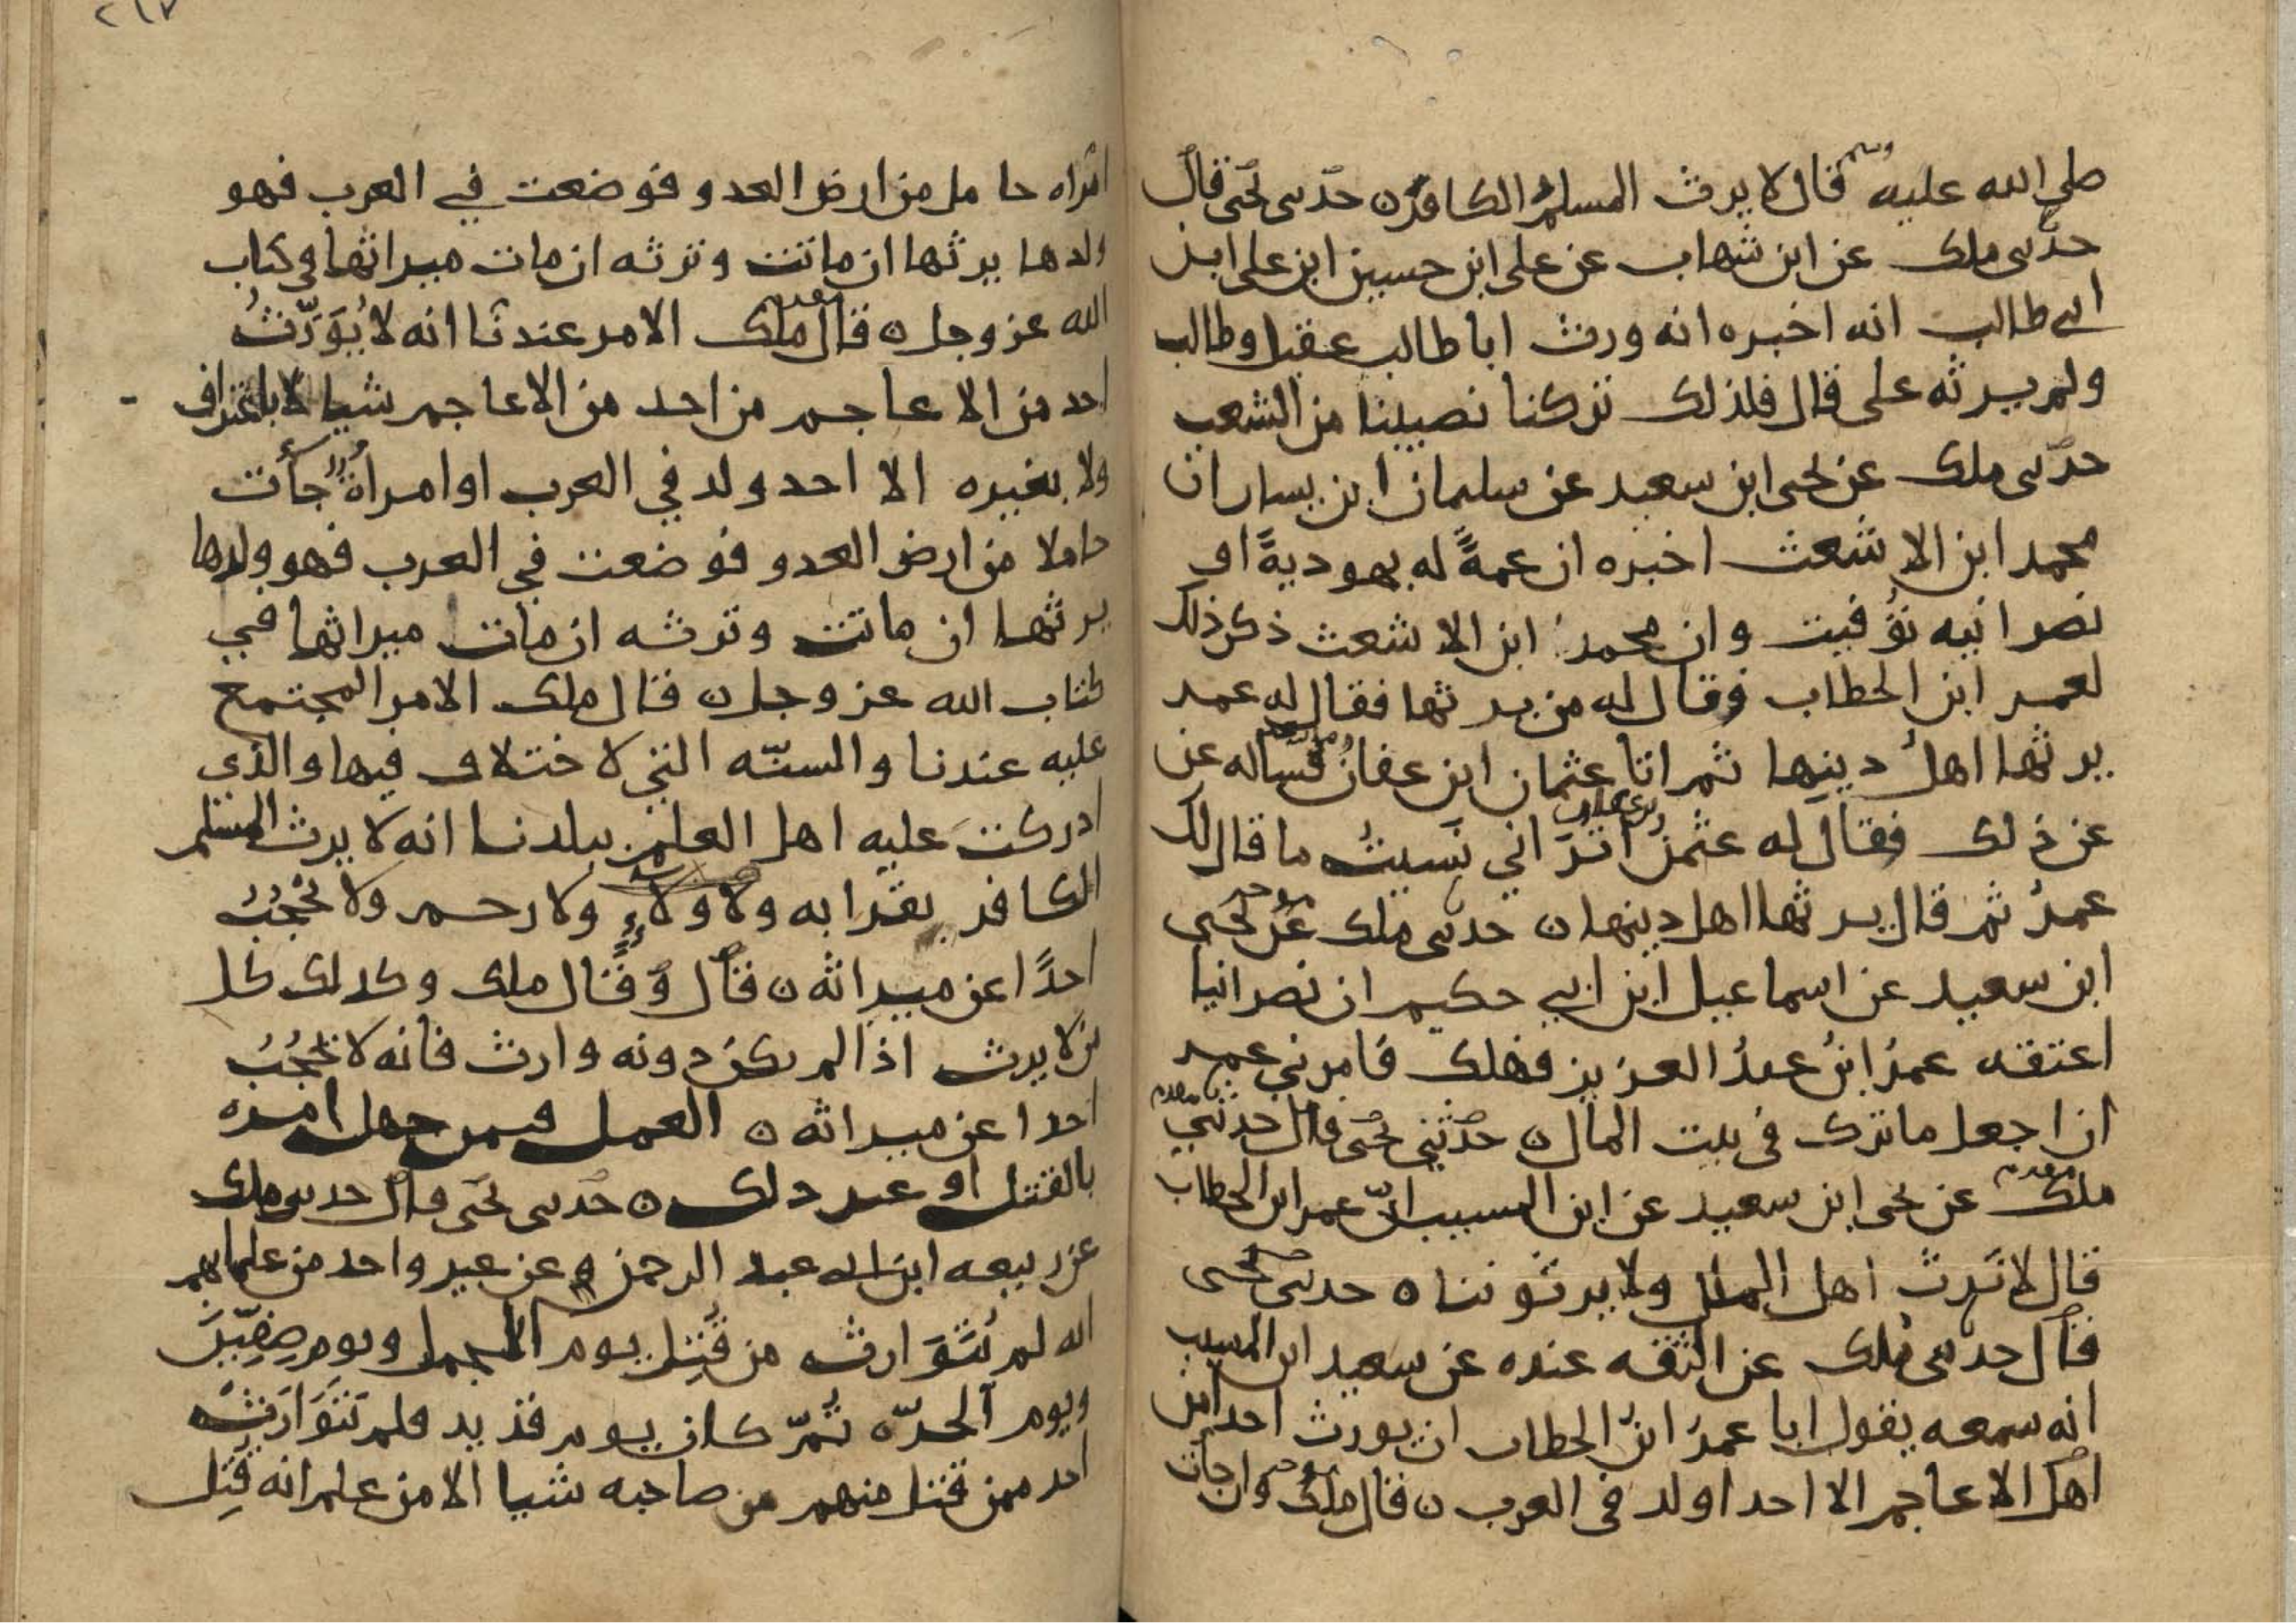 صلى الله عليه وسلم قال لا يرث المسلمُ الكافرَ ن حدّثنى يحيى قال
حدّثنى ملك عن ابن شهاب عن على ابن حسين ابن على ابن
ابي طالب انه اخبره انه ورث ابا طالب عقيل وطالب
ولم يرثه على قال فلذلك تركنا نصيبنا من الشعب
حدّثنى ملك عن يحيى ابن سعيد عن سليمان ابن يسار ان
محمد ابن الاشعث اخبره ان عمةً له يهوديةً او
نصرانيه تُوُفيت وان محمدَ ابن الاشعث ذكر ذلك
لعمر ابن الخطاب وقال له من يرثها فقال له عمر
يرثها اهلُ دينِها ثم اتا عثمان ابن عفانَ فساله عن
عن ذلك فقال له عثمنُ اتَرَاني نَسيتُ ما قال لك
عمرُ ثم قال يرثها اهل دينها ن حدثنى ملك عَن يحيى
ابن سعيد عن اسماعيل ابن ابي حكيم ان نصرانيا
اعتقه عمرُ ابنُ عبدُ العزيز فهلك فامرني عمر
ان اجعل ما ترك في بيت المال ن حدّثني يحيى قال حدثني
ملك عن يحيى ابن سعيد عن ابن المسيب انّ عمر ابن الخطاب
قال لا نَرث اهل الملل ولا يرثوننا ن حدثنى يحيى
قال حدثنى ملك عن الثقه عنده عن سعيد ابن المسيب
انه سمعه يقول ابا عمرُ ابنُ الخطاب ان يورث احد من
اهل الاعاجم الا احد اولد في العرب ن قال ملك وان جات
امراه حامل من ارض العدو فوضعت في العرب فهو
ولدها يرثها ان ماتت وترثه ان مات ميراثها في كتاب
الله عز وجل ن قال ملك الامر عندنا انه لا يُوَرّثُ
احد من الاعاجم من احد من الاعاجم شيا لا باعتراف
ولا بغيره الا احد ولد في العرب او امراة جأت
حاملا من ارض العدو فوضعت في العرب فهو ولدها
يرثها ان ماتت وترثه ان مات ميراثها في
كتاب الله عز وجل ن قال ملك الامر المجتمع
عليه عندنا والسنّه التي لاختلاف فيها والذي
ادركت عليه اهل العلم ببلدنا انه لا يرث المسلم
الكافر بقرابه ولا ولاءٍ ولا رحم ولا يَحْجُبُ
احدًا عن ميراثه ن قال وَقَال ملك وكذلك كل
من لا يرث اذا لم يكن دونه وارث فانه لا يَحْجُبُ
احدا عن ميراثه ن العمل فيمن جهل امره
بالقتل او غير ذلك ن حدثنى يحيى قال حدثنى ملك
عن ربيعه ابن ابي عبد الرحمن وعن غير واحد من علمايهم
انه لم يُتَوَارث من قُتِل يوم الجمل ويوم صِفِّين
ويوم الحرّه ثُمّ كان يوم قديد فلم يَتَوَارَث
احد ممن قتل منهم من صاحبه شيا الا من علم انه قُتِل